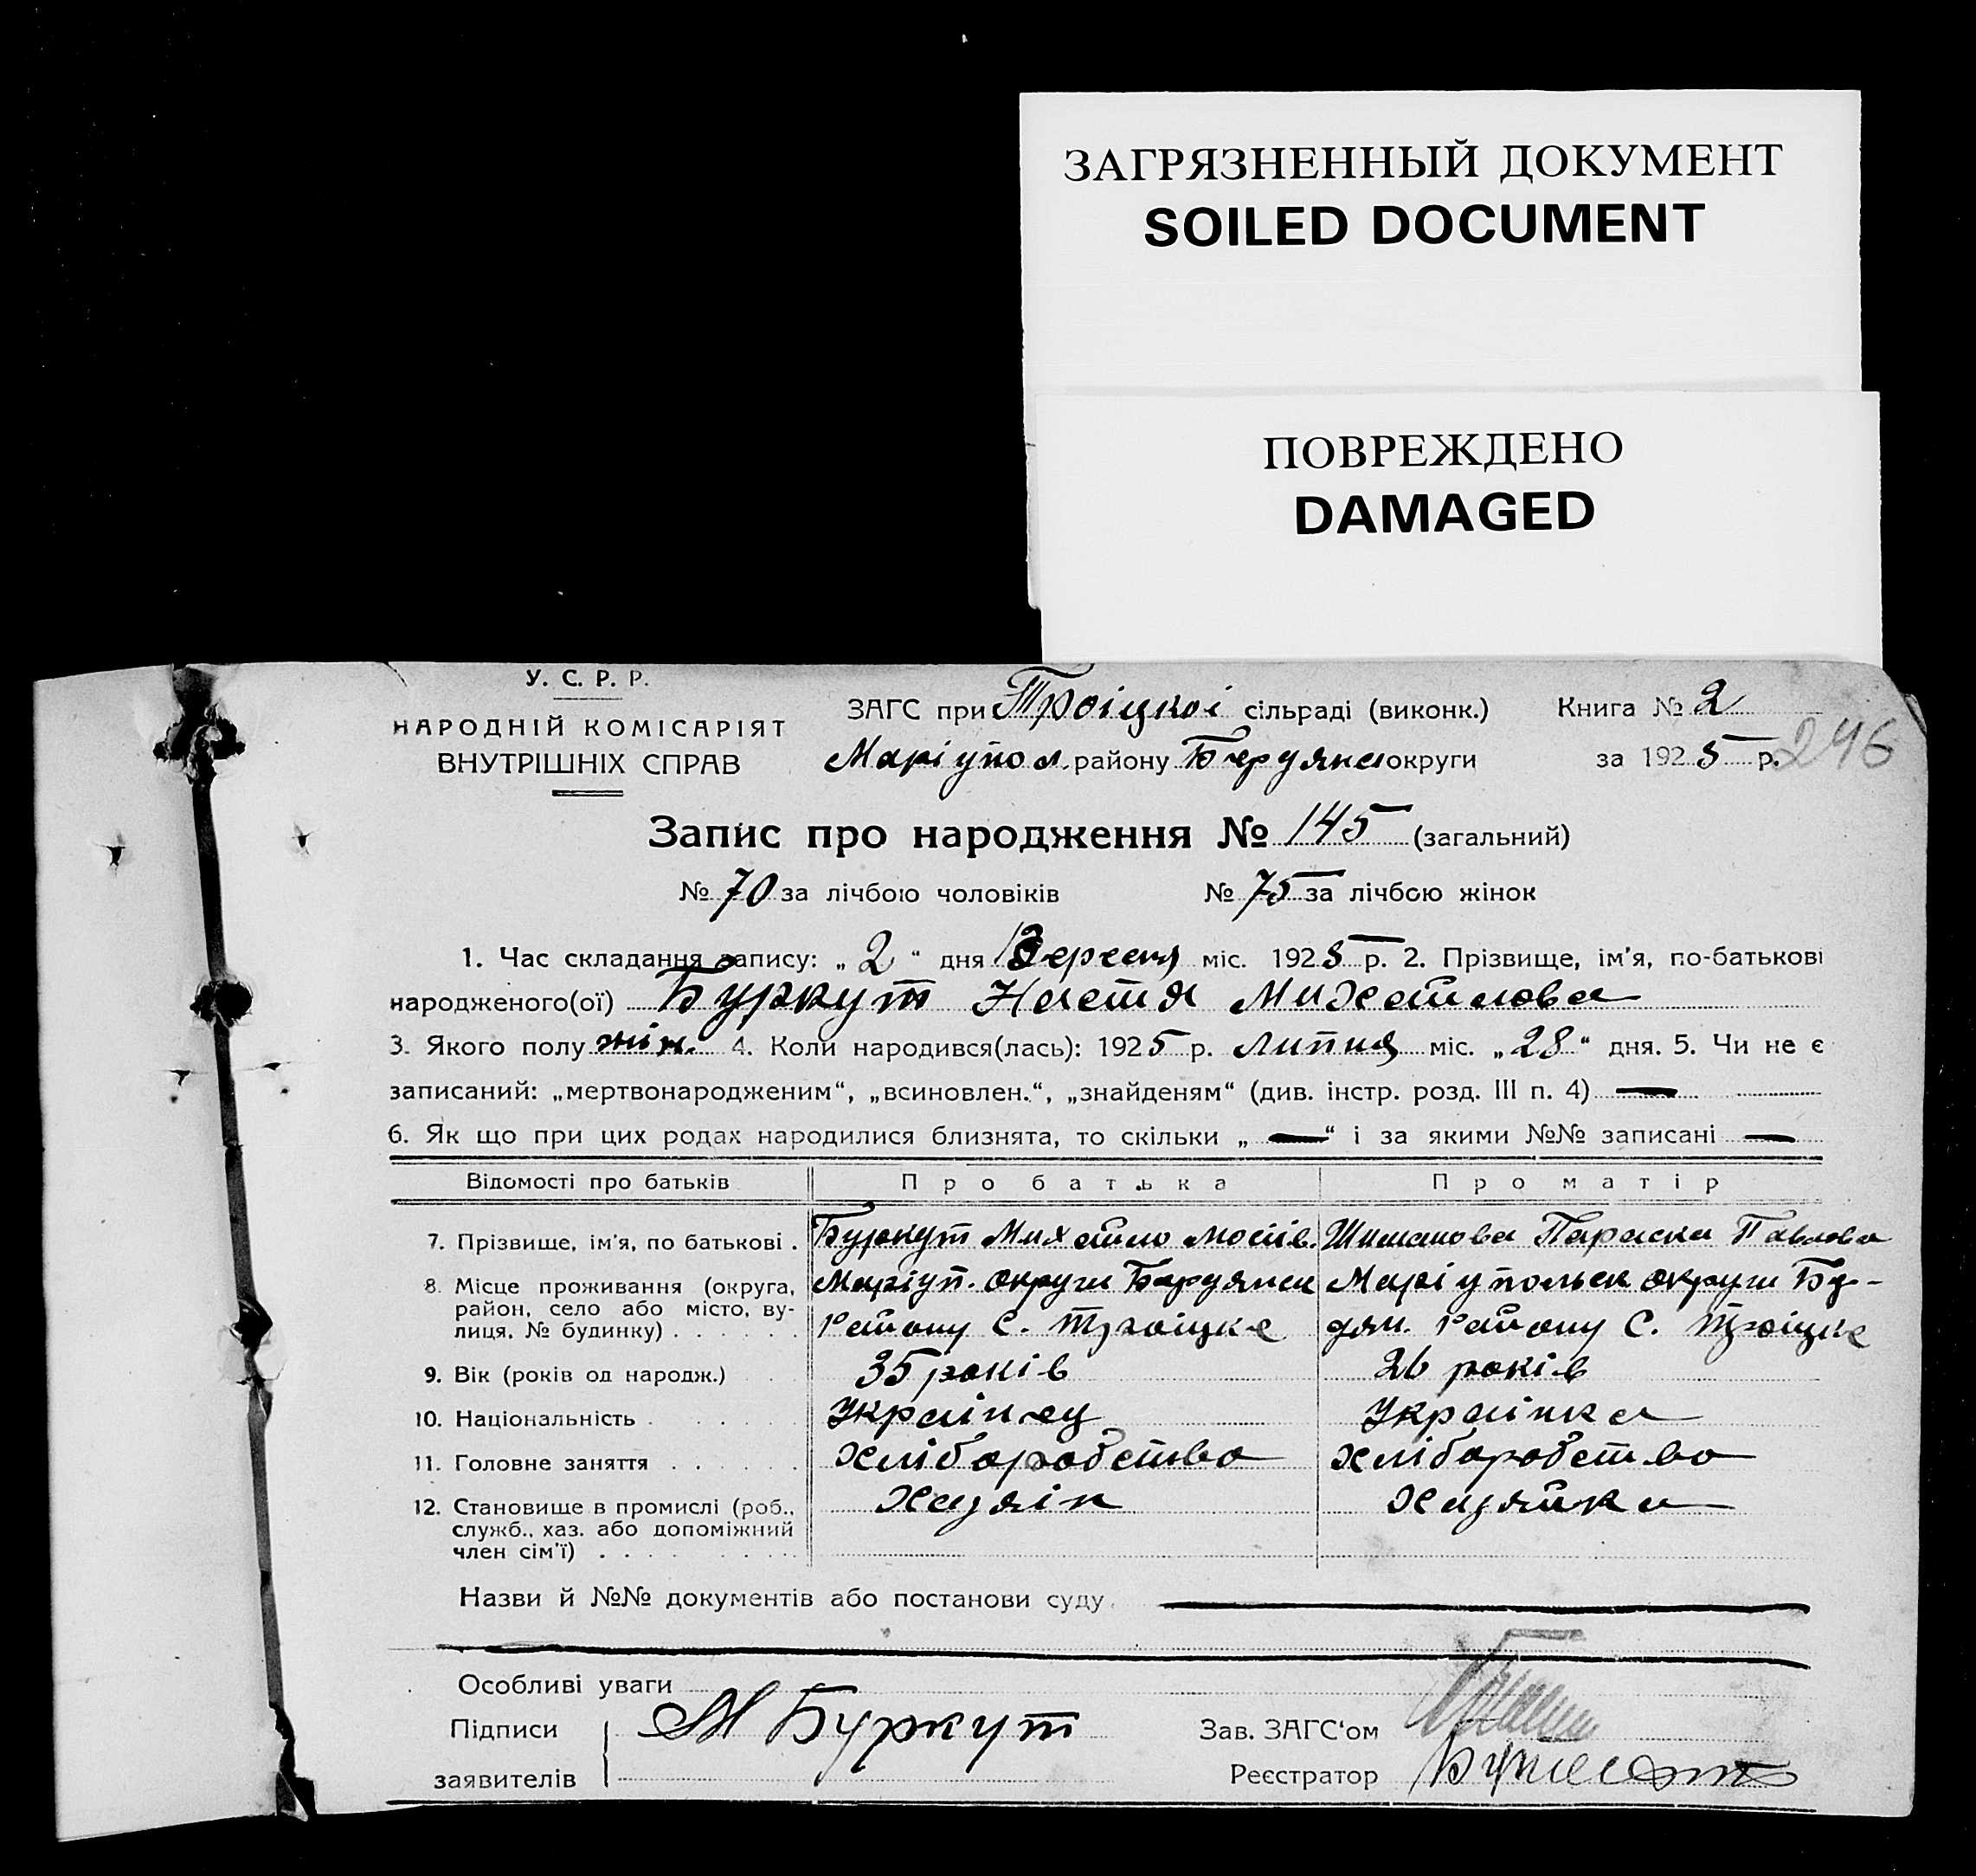 ЗАГРЯЗНЕННЫЙ ДОКУМЕНТ
SOILED DOCUMENT
ПОВРЕЖДЕНО
DAMAGED
У. С. Р. Р.
НАРОДНІЙ КОМІСАРІЯТ
ВНУТРІШНІХ СПРАВ
ЗАГС при Троіцкоі сільраді (виконк.)
Маріупол. району Бердянс округи
Книга № 2
за 1925 р.
246
Запис про народження № 145 (загальний)
№ 70 за лічбою чоловіків № 75 за лічбою жінок
1. Час складання запису: „2“ дня Вересня міс. 1925 р. 2. Прізвище, ім'я, по-батькові
народженого(ої) Буркут Настя Михайлова
3. Якого полу жін. 4. Коли народився(лась): 1925 р. липня міс. „28“ дня. 5. Чи не є
записаний: „мертвонародженим“, „всиновлен.“, „знайденям“ (див. інстр. розд. III п. 4) —
6. Як що при цих родах народилися близнята, то скільки „—“ і за якими №№ записані —
Відомості про батьків Про батька Про матір
7. Прізвище, ім'я, по батькові . Буркут Михайло Мосіів. Шиманова Параска Павлова
8. Місце проживання (округа, Маріуп. округи Бердянск Маріупольск округи Бер-
район, село або місто, ву- району с. Троіцке дян. району с. Троіцке
лиця, № будинку) . . . . . .
9. Вік (років од народж.) 35 років 26 років
10. Національність . . . . . Украінец Украінка
11. Головне заняття . . . . . . хліборобство хліборобство
12. Становище в промислі (роб., Хазяін Хазяйка
служб., хаз. або допоміжний
член сім'ї) . . . . . . . .
Назви й №№ документів або постанови суду.
Особливі уваги
Підписи М Буркут Зав. ЗАГС'ом
заявителів Реєстратор